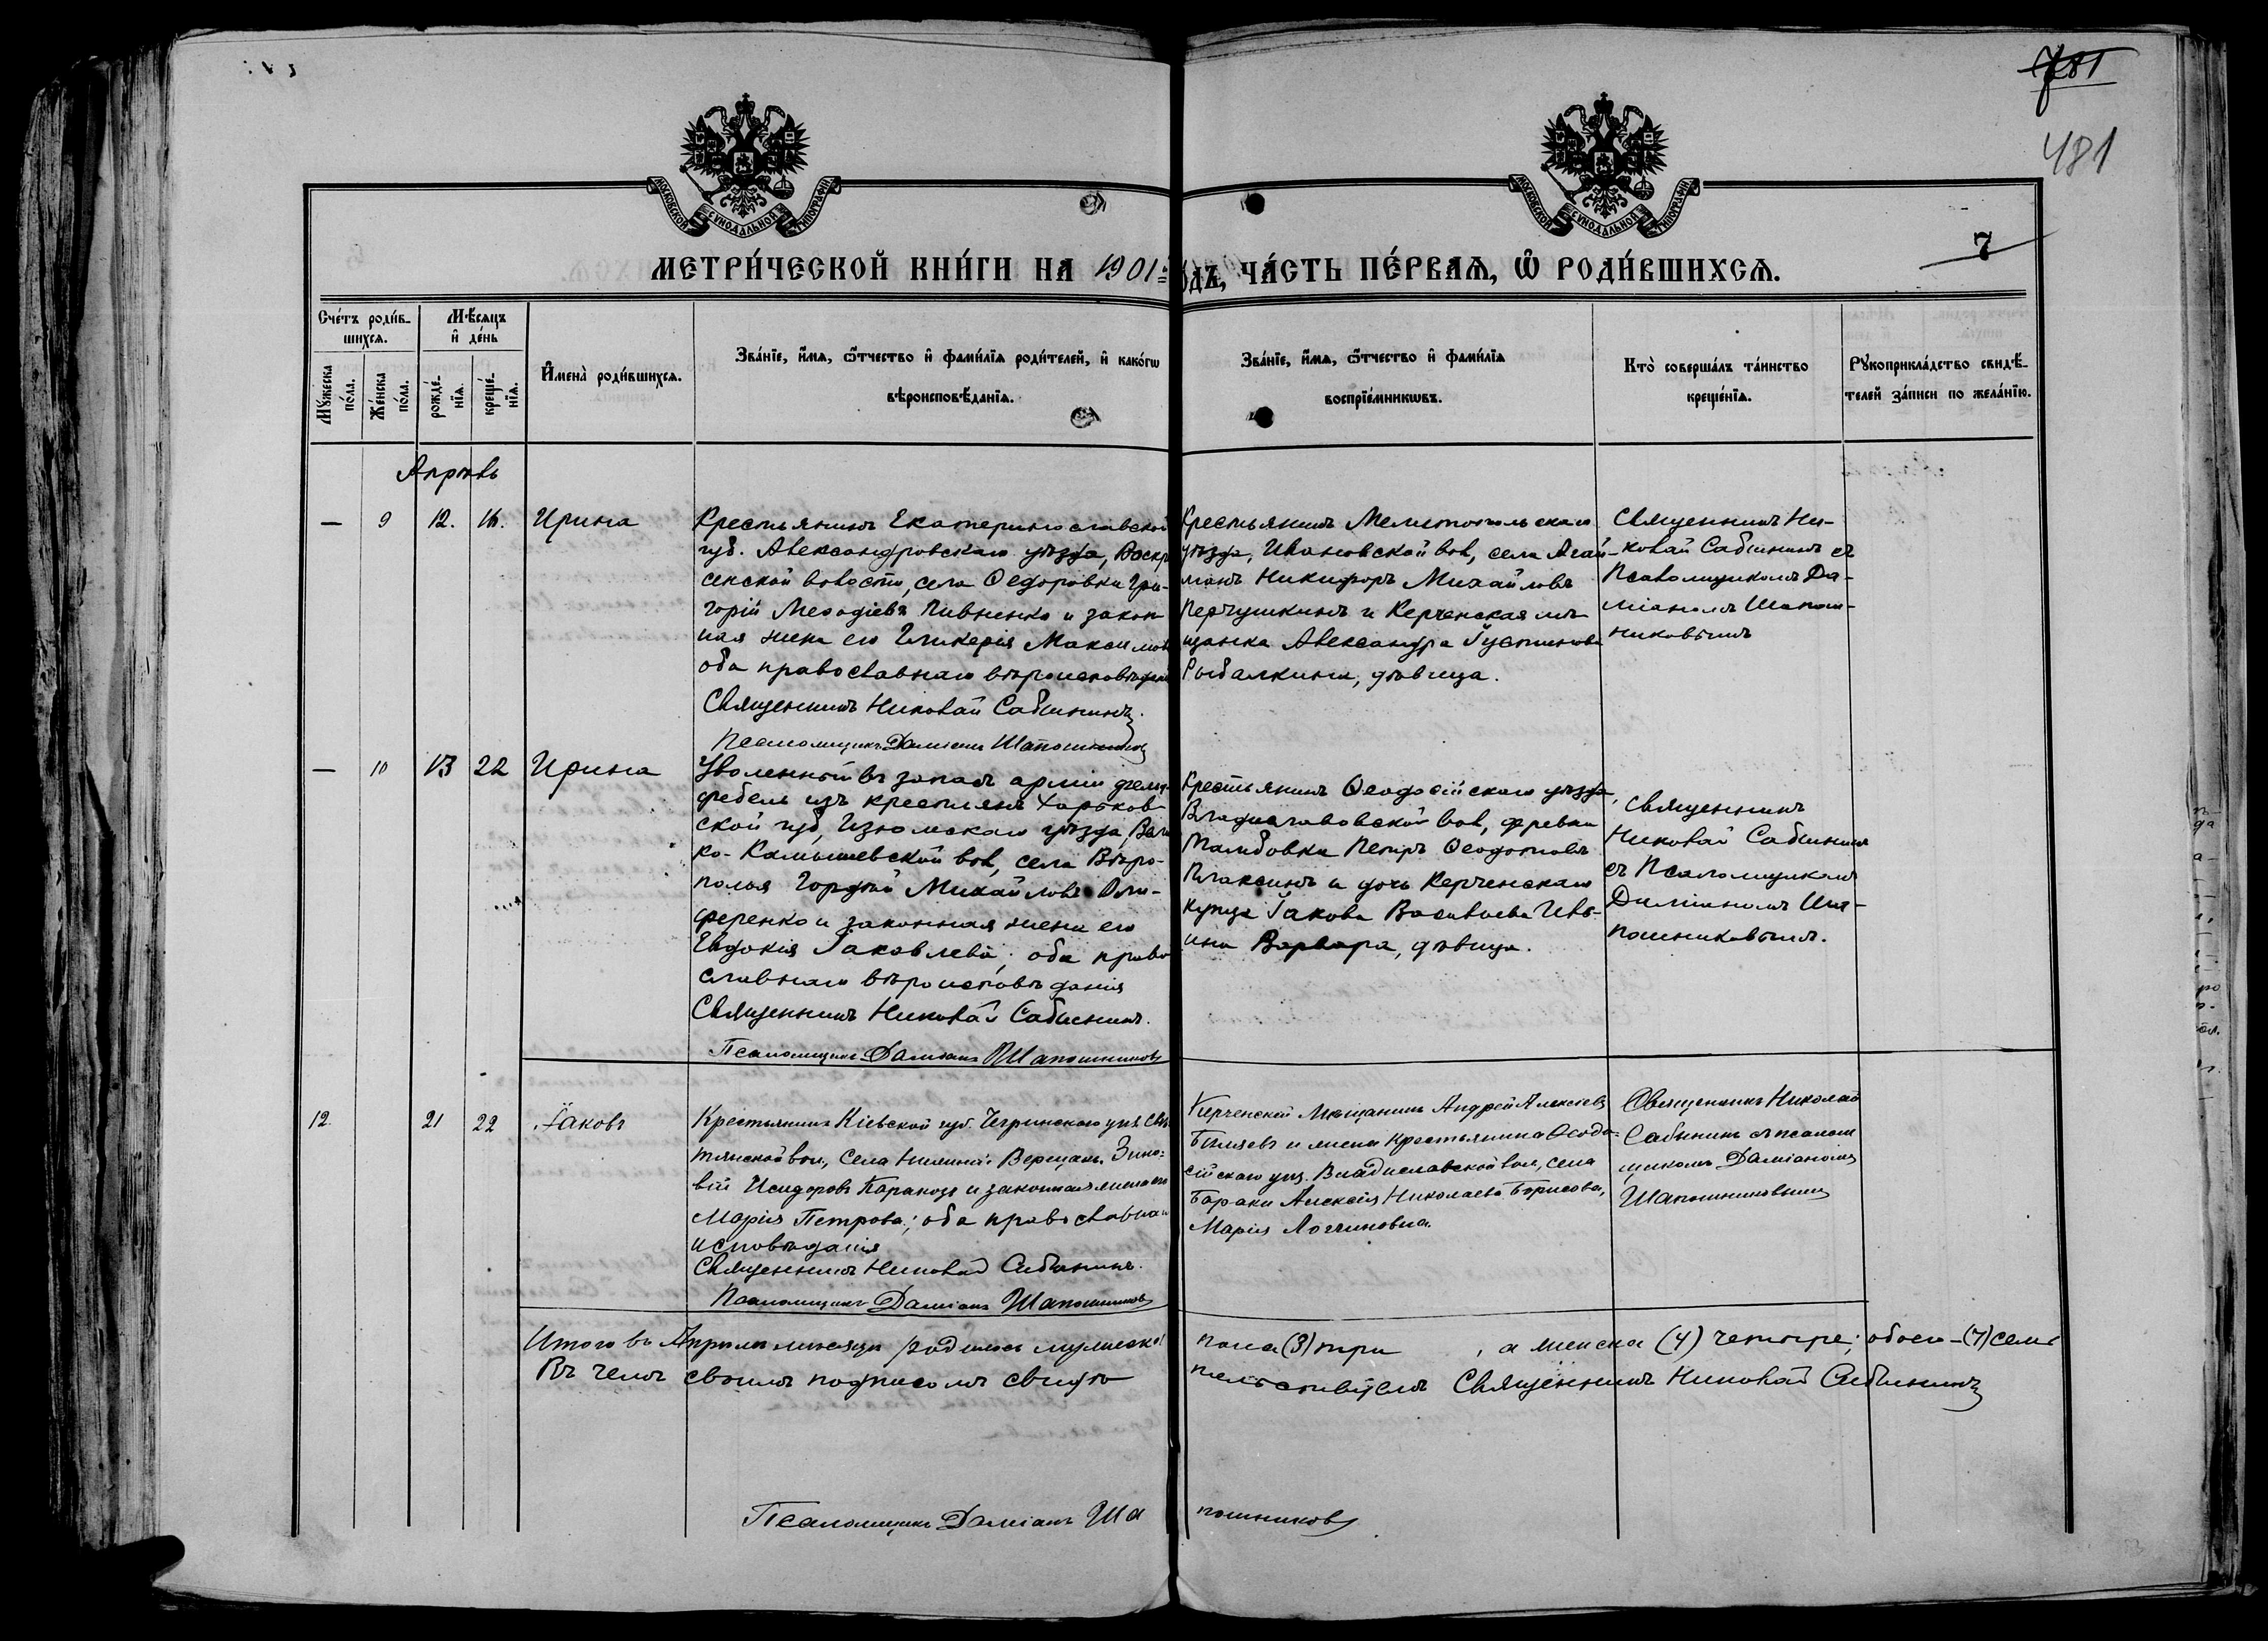 781
481
МОСКОВСКОЙ СУНОДАЛЬНОЙ ТИПОГРАФІИ
МОСКОВСКОЙ СУНОДАЛЬНОЙ ТИПОГРАФІИ
7
МЕТРИ́ЧЕСКОЙ КНИ́ГИ НА 1901 ГОДЪ, ЧА́СТЬ ПЕ́РВАЯ, Ѡ҆ РОДИ́ВШИХСЯ.
Сче́тъ роди́в-
шихся.
Мꙋ́жеска по́ла.
Же́нска по́ла.
Мѣ́сяцъ
и҆ де́нь
рожде́-
нїя.
креще́-
нїя.
И҆мена̀ роди́вшихся.
Зва́нїе, и҆́мя, ѻ҆́тчество и҆ фами́лїя роди́телей, и҆ како́гѡ
вѣроисповѣ́данїя.
Зва́нїе, и҆́мя, ѻ҆́тчество и҆ фами́лїя
воспрїе́мникѡвъ.
Кто̀ соверша́лъ та́инство
креще́нїя.
Рꙋкоприкла́дство свидѣ́-
телей за́писи по жела́нїю.
Апрѣль
— 9 12. 16. Ирина
Крестьянинъ Екатеринославской
губ. Александровскаго уѣзда, Воскре
сенской волости, села Ѳедоровки Гри-
горій Меѳодіевъ Пивненко и закон
ная жена его Гликерія Максимова
оба православнаго вѣроисповѣданія
Священникъ Николай Сабининъ.
Псаломщикъ Даміанъ Шапошниковъ
Крестьянинъ Мелитопольскаго
уѣзда, Ивановской вол, села Агай-
манъ Никифоръ Михайловъ
Перчушкинъ и Керченская мѣ
щанка Александра Іустинова
Рыбалкина, дѣвица.
Священникъ Ни-
колай Сабининъ съ
Псаломщикомъ Да-
міаномъ Шапош-
никовымъ
— 10 13 22 Ирина
Уволенный въ запасъ арміи фельд-
фебель изъ крестьянъ Харьков-
ской губ, Изюмскаго уѣзда, Вели
ко-Камышевской вол, села Вѣро-
полья Гордѣй Михайловъ
ференко и законная жена его
Евдокія Іаковлева; оба право
славнаго вѣроисповѣданія
Священникъ Николай Сабининъ.
Псаломщикъ Даміанъ Шапошниковъ
Крестьянинъ Ѳеодосійскаго уѣзда,
Владиславовской вол, деревни
Тамбовки Петръ Ѳеодотовъ
Плаксинъ и дочь Керченскаго
купца Іакова Васильева Иль-
ина Варвара, дѣвица.
Священникъ
Николай Сабининъ
съ Псаломщикомъ
Даміаномъ Ша-
пошниковымъ.
12. 21 22 Іаковъ
Крестьянинъ Кіевской губ. Чигринскаго уѣз.
тянской вол., села Нижний Верещакъ Зино-
вій Исидоровъ Каракозъ и законная жена его
Марія Петрова; оба православнаго
исповѣданія
Священникъ Николай Сабининъ.
Псаломщикъ Даміанъ Шапошниковъ
Керченскій Мѣщанинъ Андрей Алексѣевъ
Бѣляевъ и жена крестьянина Ѳеодо-
сійскаго уѣз. Владиславской вол, села
Бараки Алексѣя Николаева Борисова,
Марія Логгиновна.
Священникъ Николай
Сабининъ съ псалом
щикомъ Даміаномъ
Шапошниковымъ
Итого въ Апрѣлѣ мѣсяцѣ родилось мужеска пола (3) три, а женска (4) четыре; обоего — (7) семь
Въ чемъ своимъ подписомъ свидѣтельствуемъ Священникъ Николай Сабининъ
Псаломщикъ Даміанъ Шапошниковъ